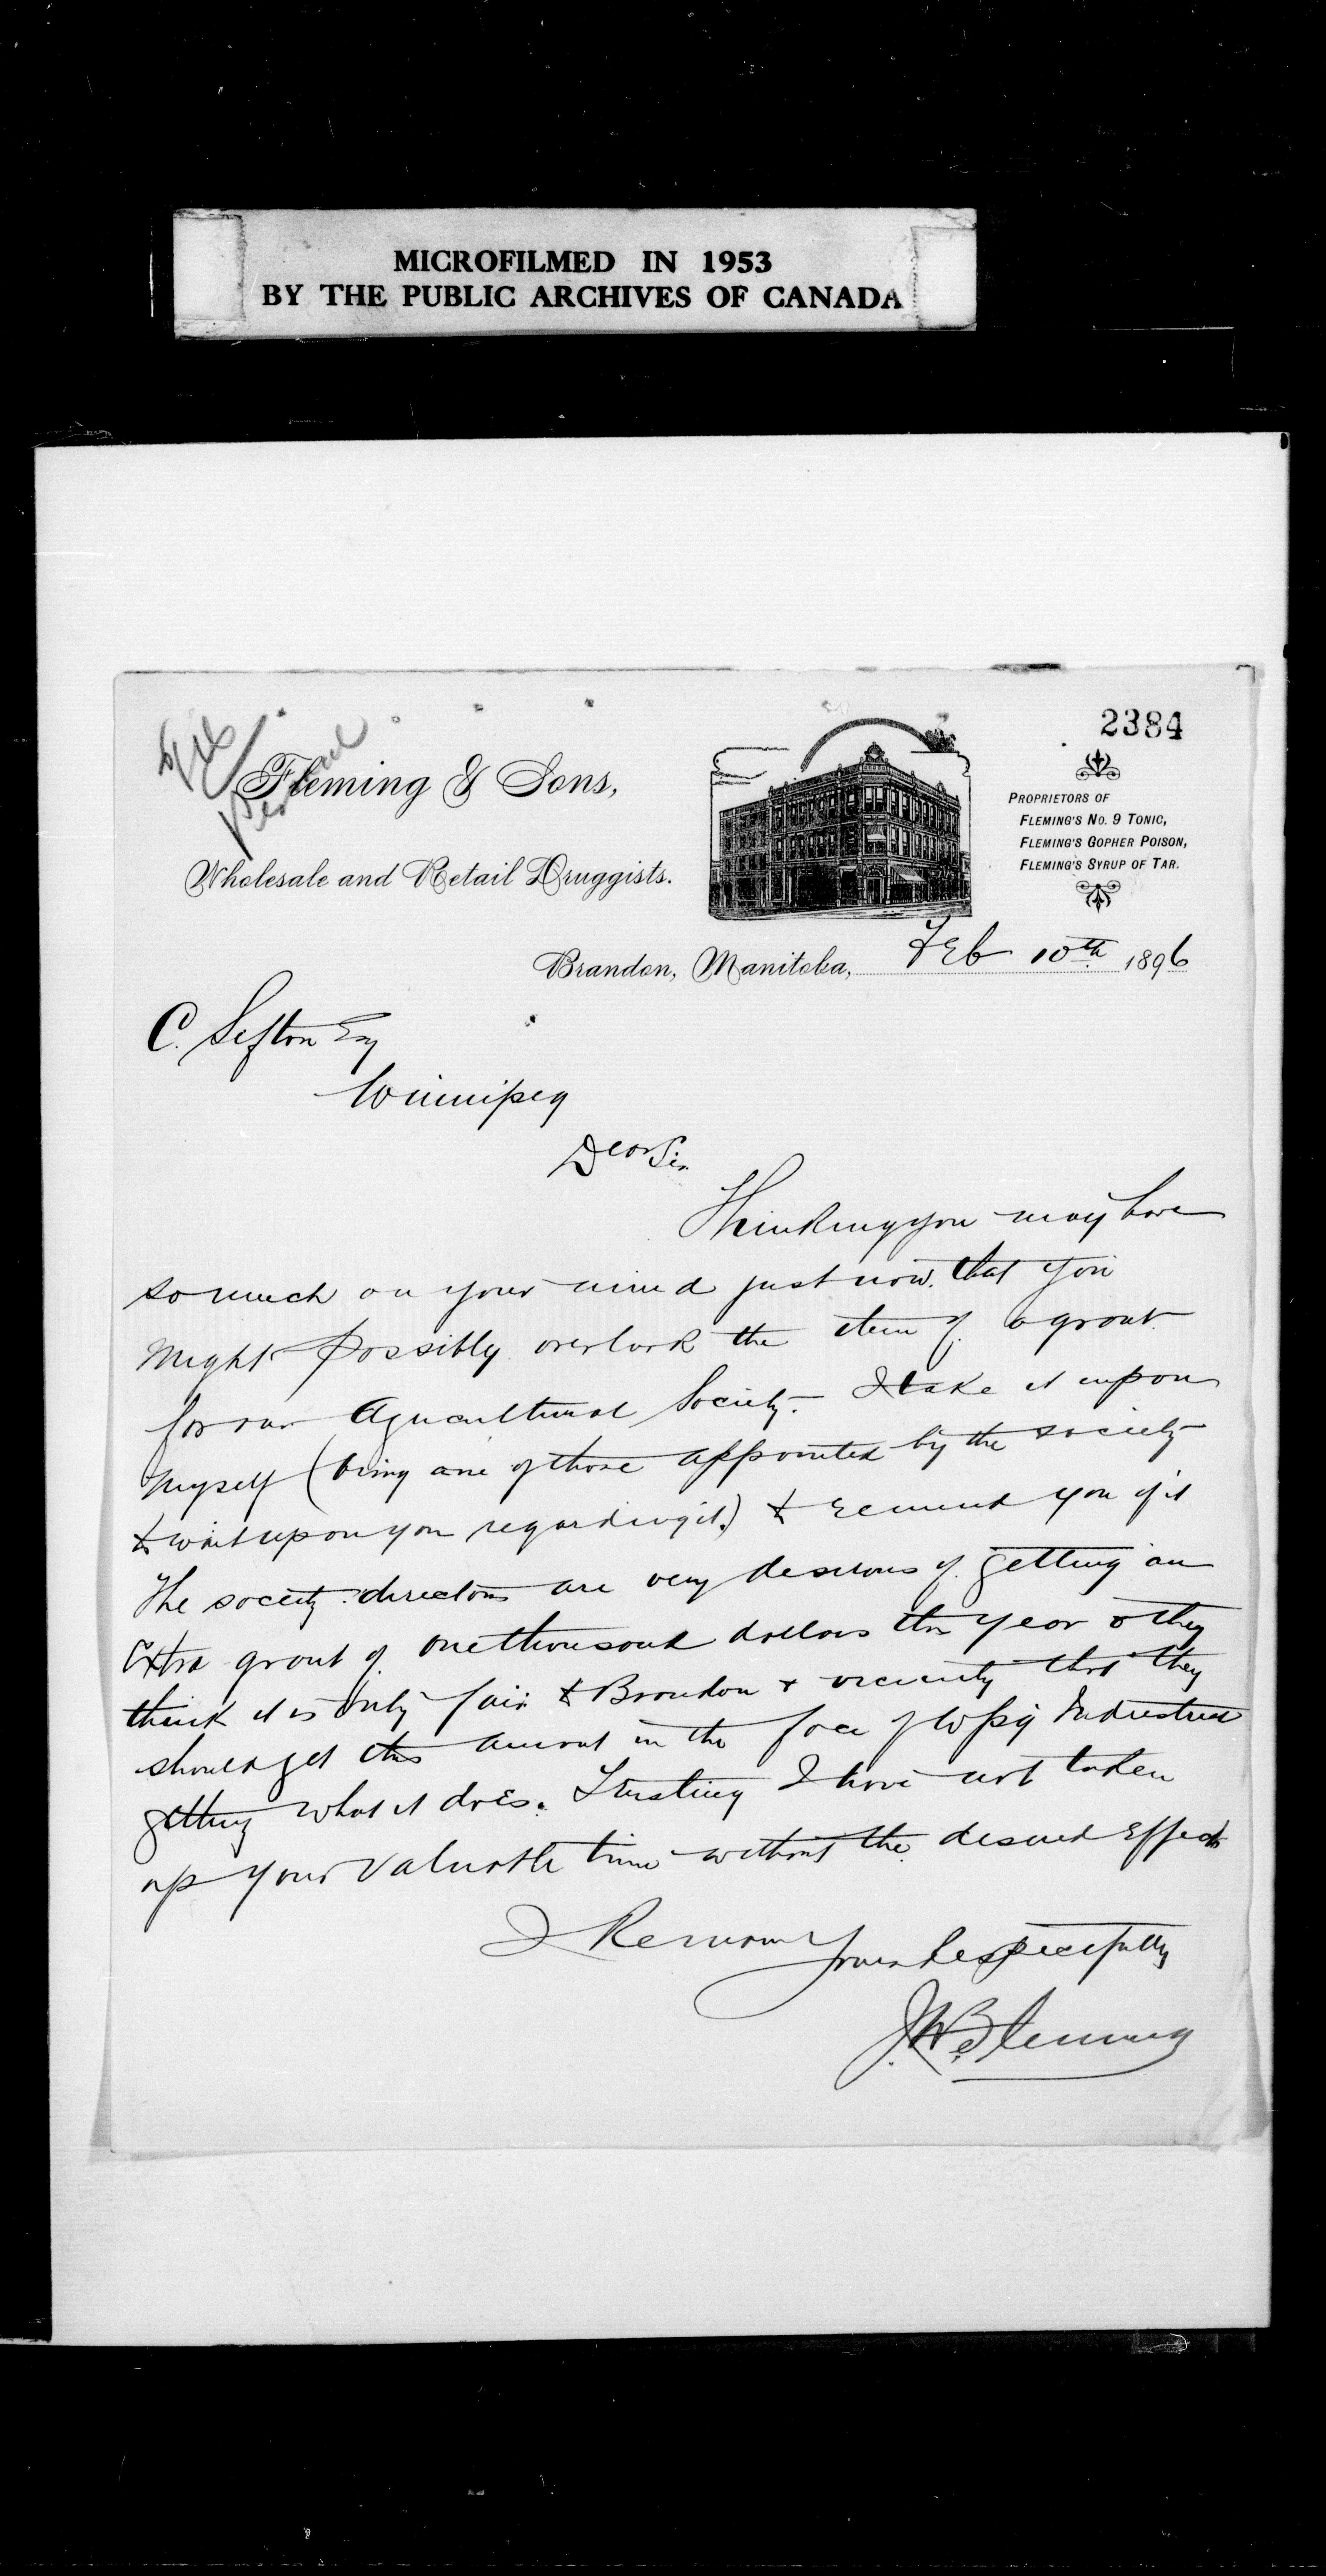 MICROFILMED IN 1953
BY THE PUBLIC ARCHIVES OF CANADA
2384
File
Personal
Fleming & Sons,
Wholesale and Retail Druggists.
PROPRIETORS OF
FLEMING'S NO. 9 TONIC,
FLEMING'S GOPHER POISON,
FLEMING'S SYRUP OF TAR.
Brandon, Manitoba, Feb 10th 1896
C. Sifton Esq
Winnipeg
Dear Sir
Thinking you may have
so much on your mind just now. that you
might possibly overlook the item of a grant
for our Agricultural Society. I take it upon
myself (being one of those appointed by the society
to wait upon you regarding it.) to remind you of it
The society directors are very desirous of getting an
Extra grant of one thousand dollars this year & they
think it is only fair to Brandon & vicinity that they
should get this amount in the face of Wpg Industrial
getting what it does. Trusting I have not taken
up your valuable time without the desired Effects
I Remain
Yours Respectfully
J.W. Fleming